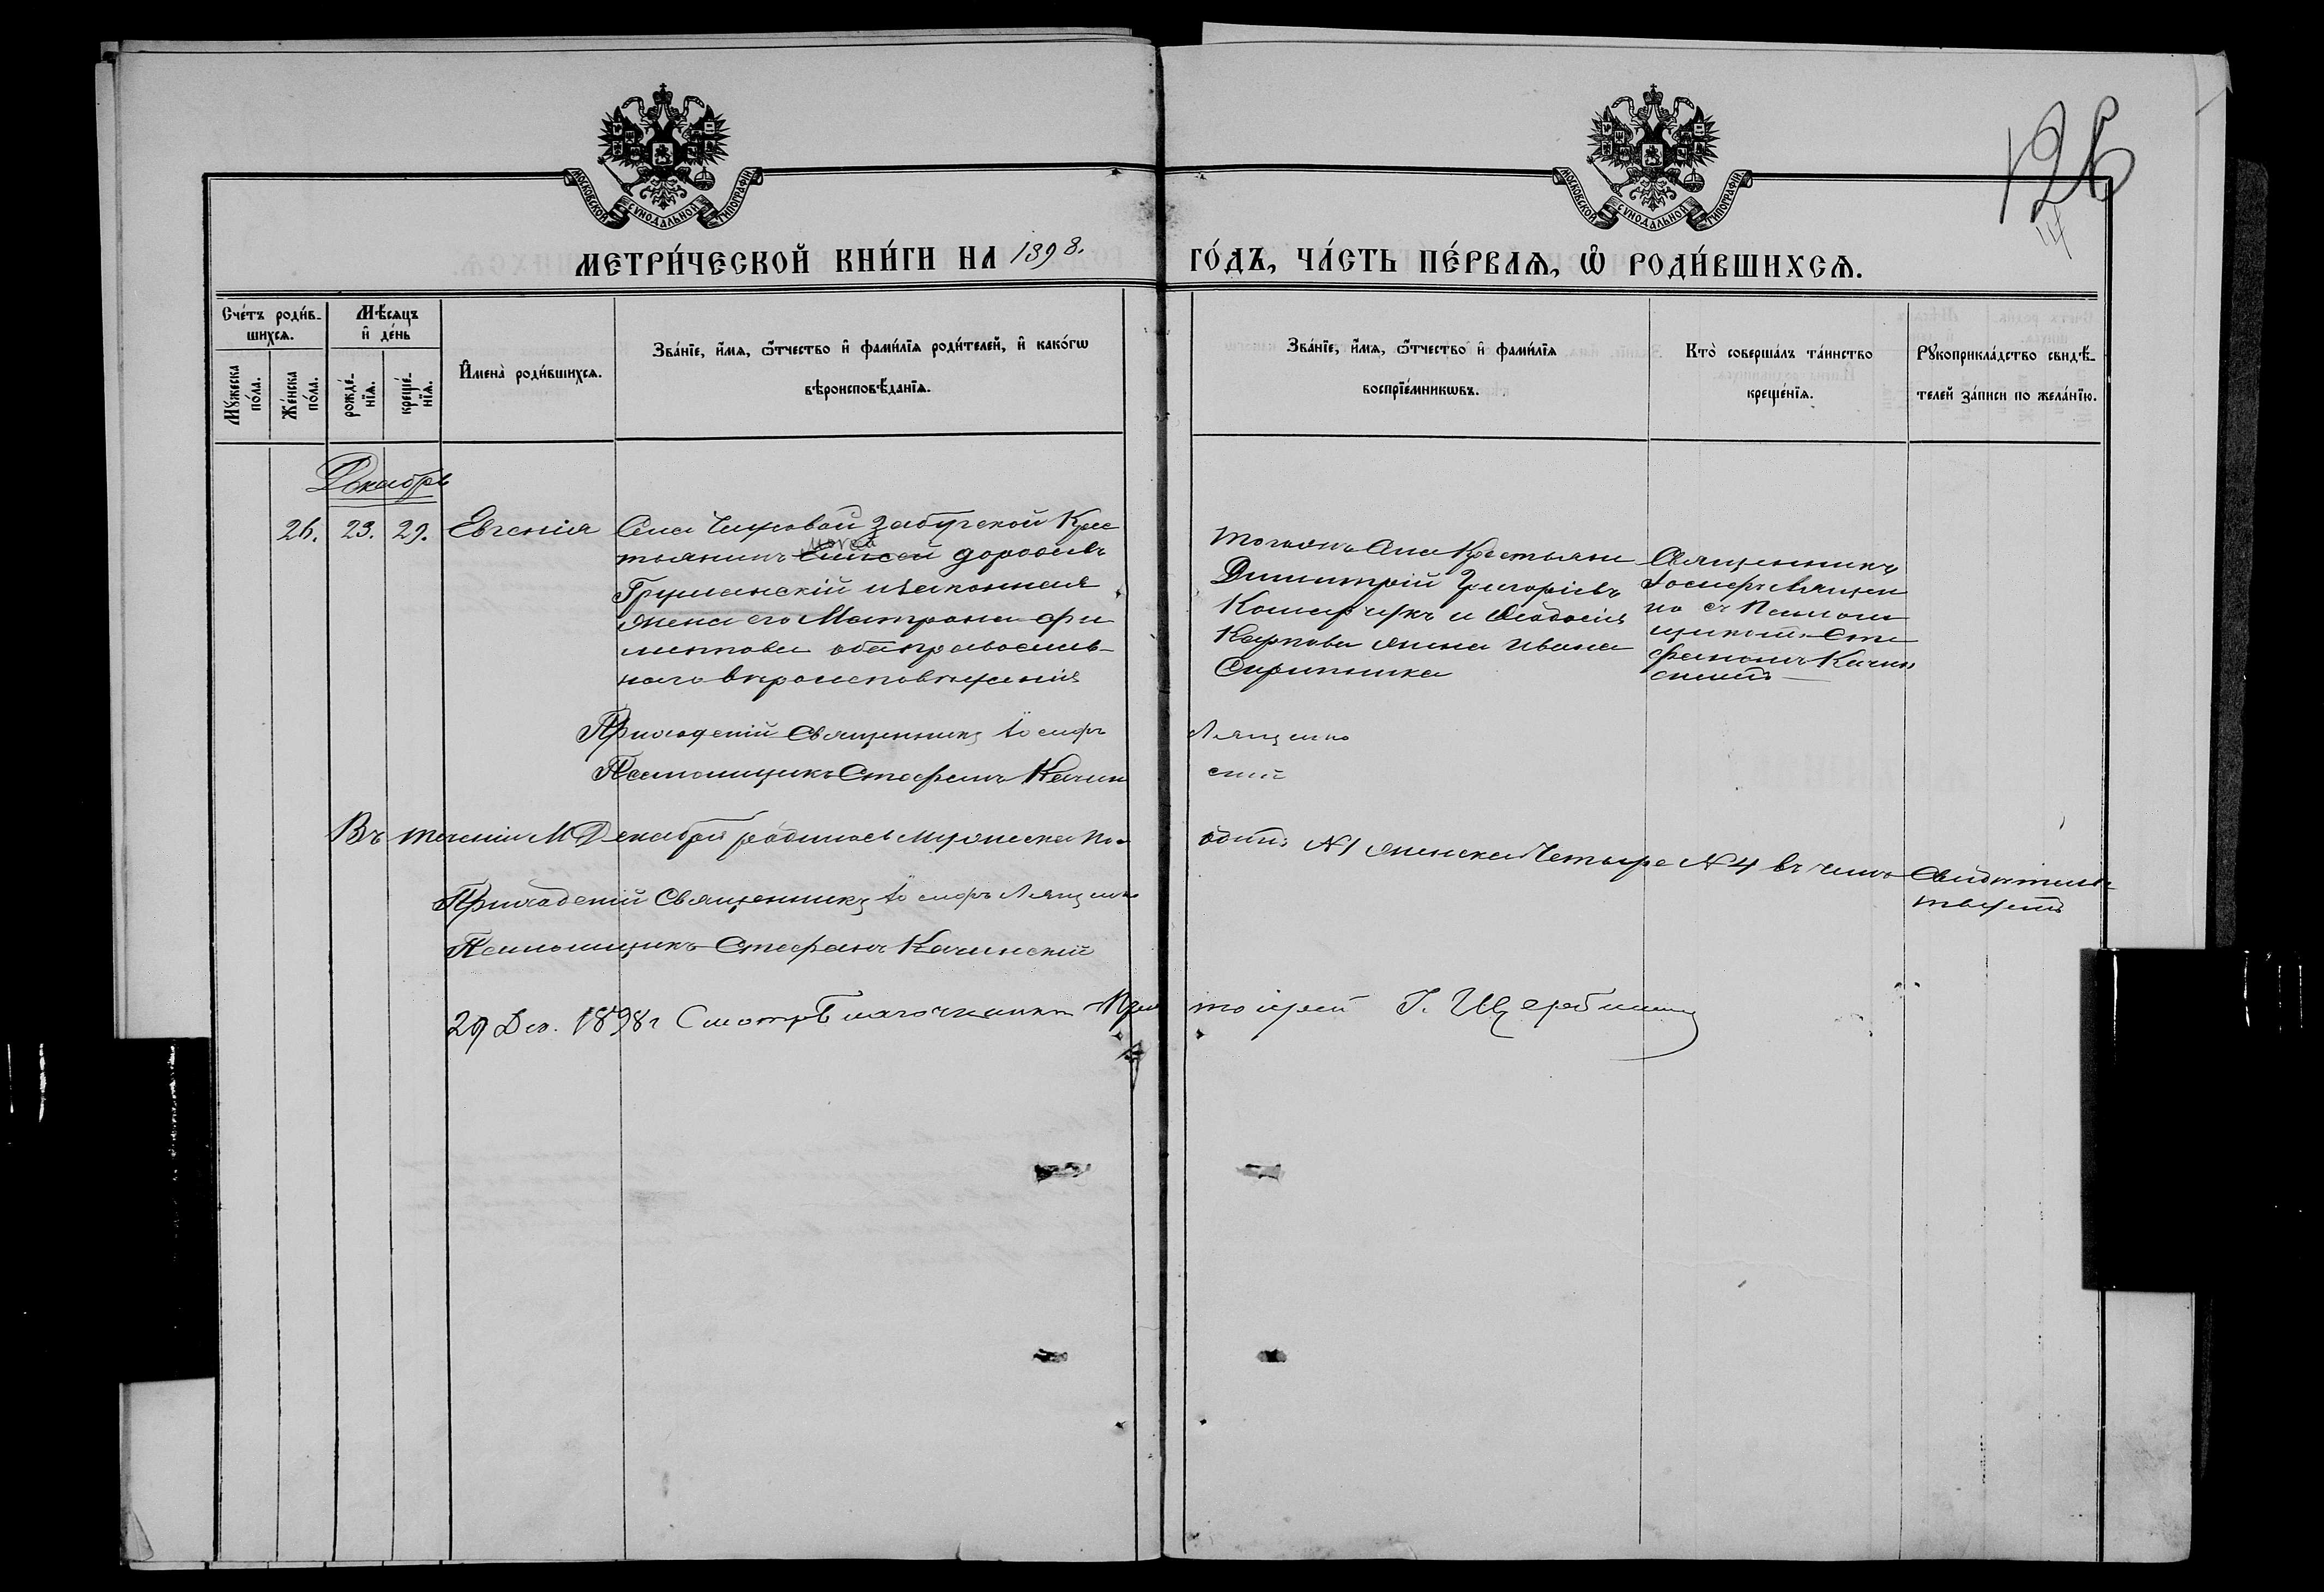 126
МОСКОВСКОЙ СѴНОДАЛЬНОЙ ТИПОГРАФІИ
МОСКОВСКОЙ СѴНОДАЛЬНОЙ ТИПОГРАФІИ
МЕТРИ́ЧЕСКОЙ КНИ́ГИ НА 1898. ГО́ДЪ, ЧА́СТЬ ПЕ́РВАѦ, Ѽ РОДИ́ВШИХСѦ.
Сче́тъ роди́в-
шихсѧ.
Мѣ́сѧцъ
и҆ де́нь
Мꙋ́жеска
по́ла.
Же́нска
по́ла.
рожде́-
нїѧ.
креще́-
нїѧ.
И҆мена̀ роди́вшихсѧ.
Зва́нїе, и҆́мѧ, ѻ҆́тчество и҆ фами́лїѧ роди́телей, и҆ како́гѡ
вѣроисповѣ́данїѧ.
Зва́нїе, и҆́мѧ, ѻ҆́тчество и҆ фами́лїѧ
воспрїе́мникѡвъ.
Кто̀ соверша́лъ та́инство
креще́нїѧ.
Рꙋкоприкла́дство свидѣ́-
телей за́писи по жела́нїю.
Декабрь
26. 23. 29. Евгенія
Села Забугской Крес
тьянинъ Моисей Дорофеевъ
Грушанскій и законная
жена его Матрона Фи
липпова оба православ-
наго вѣроисповѣданія
Тогожъ Села Крестьяне
Димитрій Григоріевъ
и Ѳеодосія
Карпова жена Ивана
Скрипника
Священникъ
Іосифъ Лящен
ко съ Псалом
щикомъ Сте
фаномъ Качин
скимъ
Приходскій Священникъ Іосифъ Лященко
Псаломщикъ Стефанъ Качинскій
Въ теченіи М Декабря родилось мужеска пола одинъ №1 женска Четыре №4 въ чемъ Свидѣтель-
ствуемъ
Приходскій Священникъ Іосифъ Лященко
Псаломщикъ Стефанъ Качинскій
29 Дек. 1898 г Смотр. Благочинный Протоіерей І. Щербина